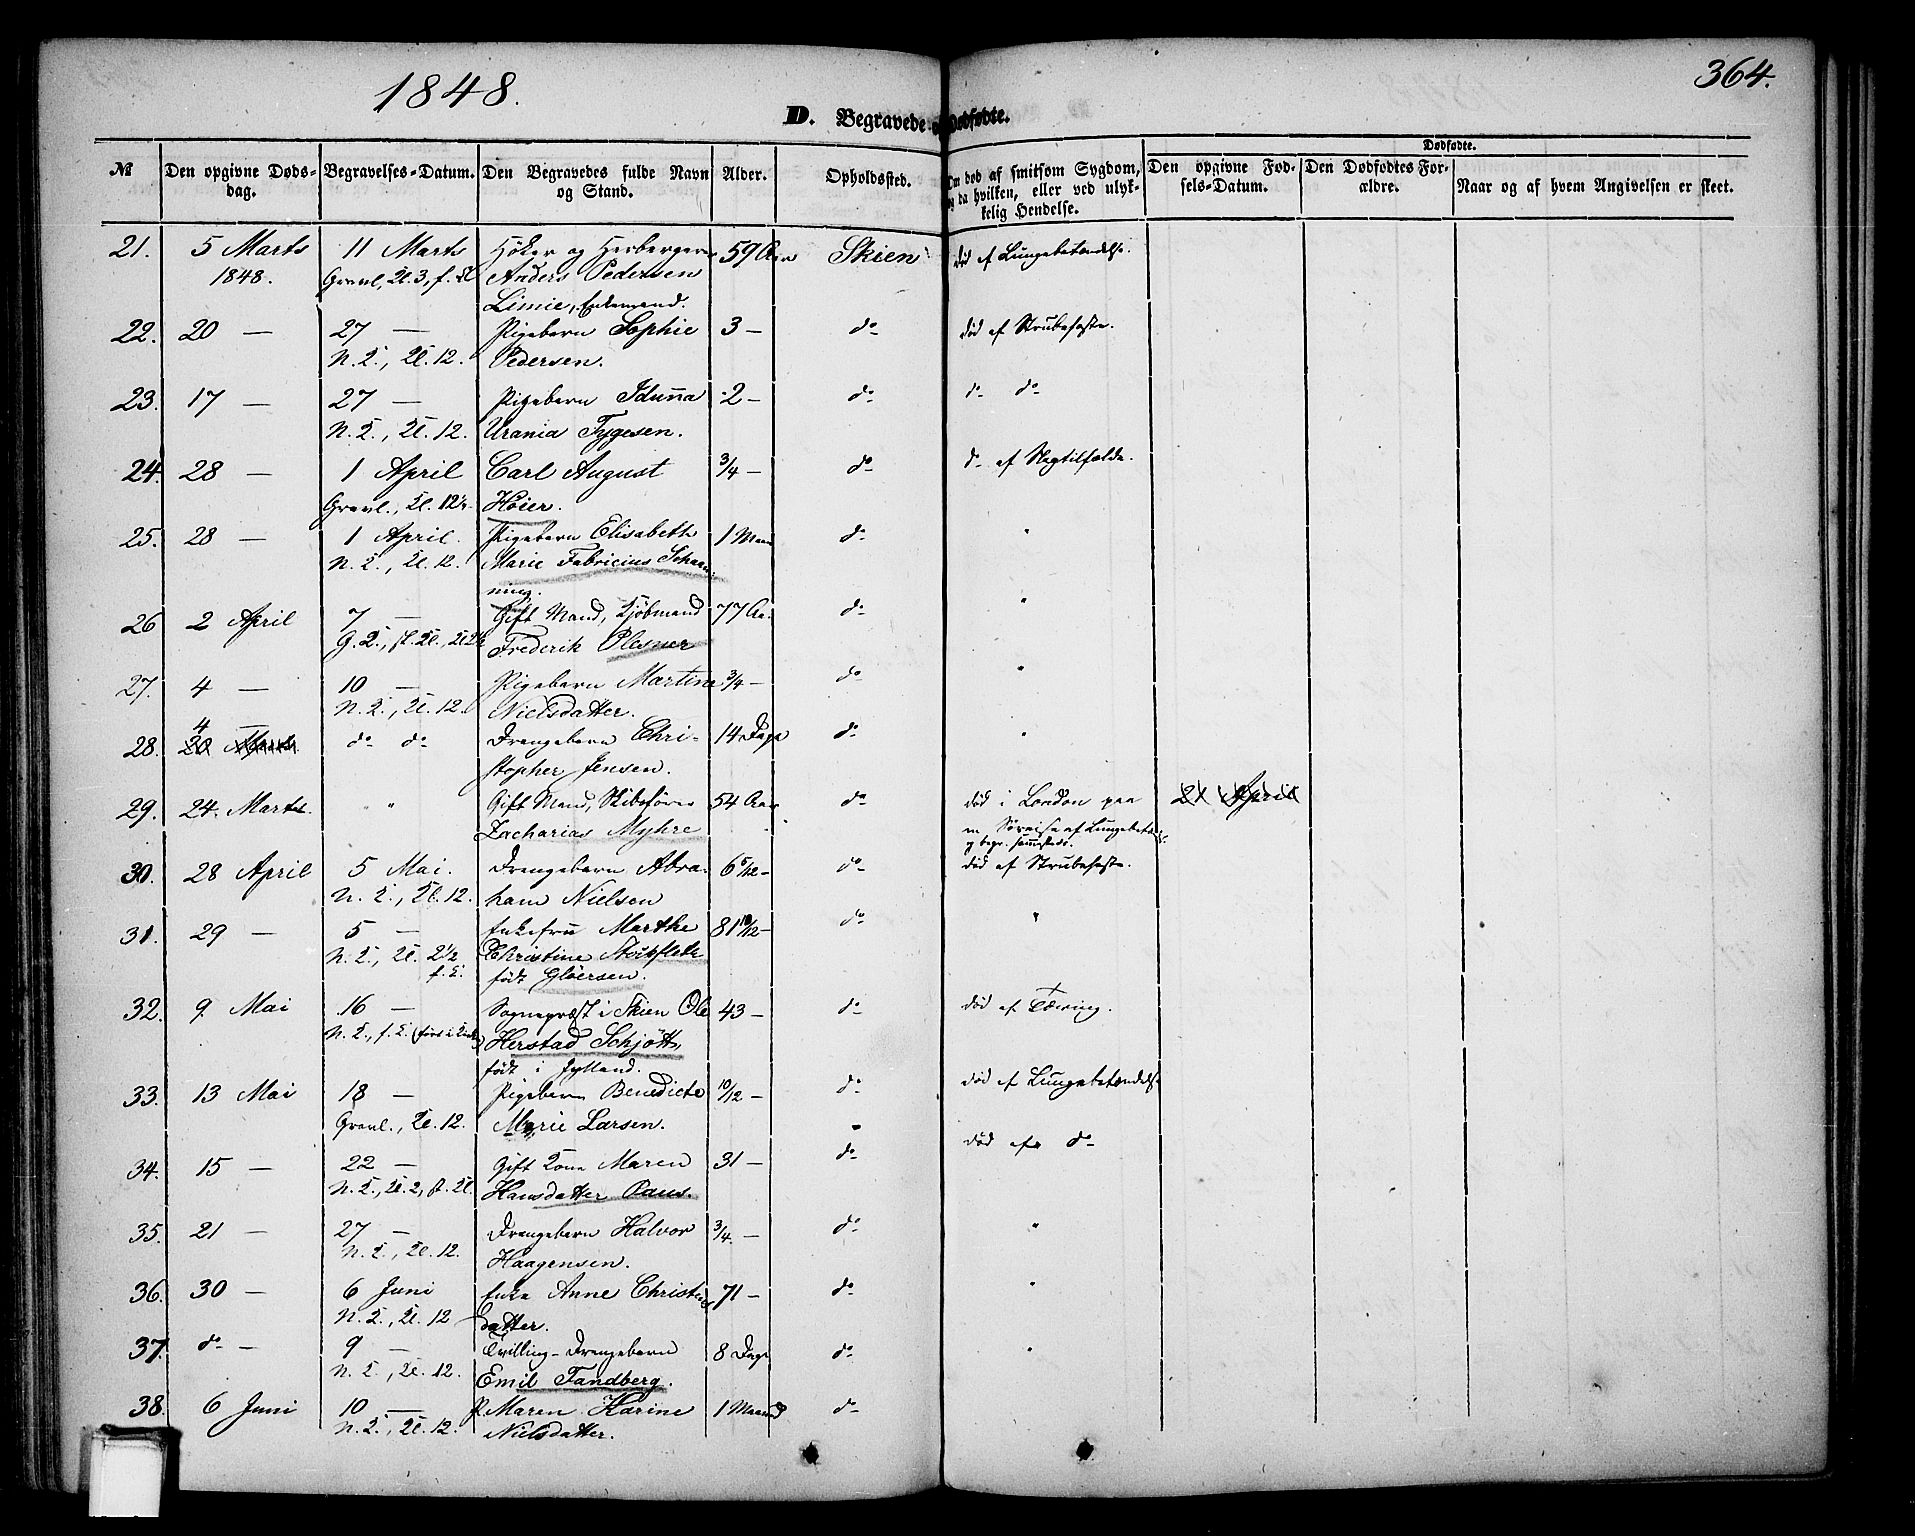 1848.
364.
D. Begravede og Dødfødte.
№
Den opgivne Dødsdag.
Begravelses-Datum.
Den Begravedes fulde Navn og Stand.
Alder.
Opholdssted.
Om død af smitsom Sygdom, og da hvilken, eller ved ulykkelig Hendelse.
Dødfødte.
Den opgivne Fødsels-Datum.
Den Dødfødtes Forældre.
Naar og af hvem Angivelsen er skeet.
21. 5 Marts 11 Marts Höker og Herbergerer 59 Aar Skien død af Lungebetændelse.
1848. Gravl, Kl. 3, Anders Pedersen
Limie, Enkemand.
22. 20 — 27 — Pigebarn Sophie 3 — do død af Strubehoste.
N. K., Kl. 12. Pedersen.
23. 17 — 27 — Pigebarn Idunna 2 — do do do
N. K., Kl. 12. Urania Tygesen.
24. 28 — 1 April Carl August 3/4 — do do af Slagtilfælde.
Gravl., Kl. 12½. Höier.
25. 28 — 1 April. Pigebarn Elisabeth 1 Maan do "
N. K., Kl. 12. Marie Fabricius Schan-
ning.
26 2 April 7 — Gift Mand, Kjöbmand 77 Aar do "
G. K., Frederik Plesner
27. 4 — 10 — Pigebarn Martine 3/4 — do "
N. K., Kl. 12. Nielsdatter.
28. 4 — 20 Marts do do Drengebarn Chri- 14 Dage do "
stopher Jensen.
29. 24. Marts. " " Gift Mand, Skibsförer 54 Aar do død i London paa 21 April
Zacharias Myhre en Søreise af Lungebetændelse
og begr. sammesteds.
30. 28 April 5 Mai. Drengebarn Abra- 6 5/12 — do død af Strubehoste.
N. K., Kl. 12. ham Nielsen
31. 29 — 5 — Enkefru Marthe 81 10/12 — do "
N. K., Kl. 2½ Christine Stockfleth
f. K. födt Glöersen.
32. 9 Mai 16 — Sognepræst i Skien Ole 43 — do død af Tæring.
N. K., f. K. Herstad Schjött,
födt i Jylland.
33. 13 Mai 18 — Pigebarn Benedicte 10/12 — do død af Lungebetændelse
Gravl., Kl. 12. Marie Larsen.
34. 15 — 22 — Gift Kone Maren 31 — do død af do
N. K., Kl. 2, Hansdatter Paus.
35. 21 — 27 — Drengebarn Halvor 3/4. — do "
N. K., Kl. 12. Haagensen.
36. 30 — 6 Juni Enke Anne Christens 71 — do "
N. K., Kl. 12 datter.
37. do — 9 — Tvilling-Drengebarn 8 Dage do "
N. K., Kl. 12. Emil Tandberg.
38. 6 Juni 10 — P. Maren Karine 1 Maaned do
N. K., Kl. 12. Nielsdatter.